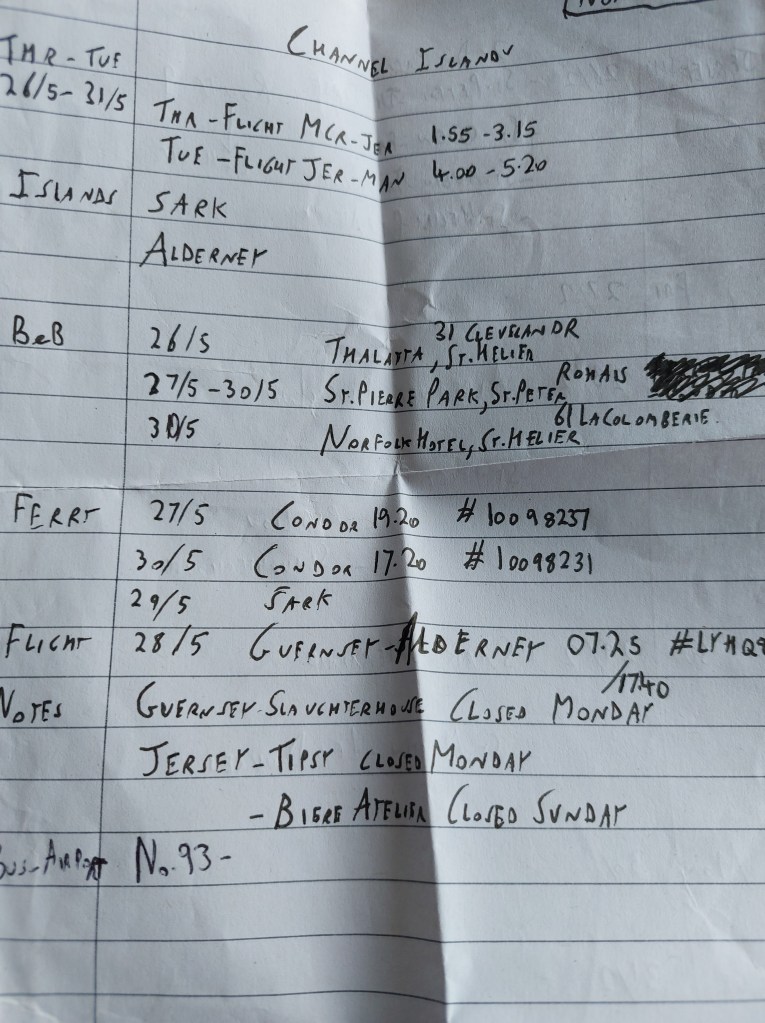 CHANNEL ISLANDS
THR - TUE
26/5 - 31/5
THR - FLIGHT MCR - JER 1.55 - 3.15
TUE - FLIGHT JER - MAN 4.00 - 5.20
ISLANDS SARK
ALDERNEY
31 CLEVELAND R
B&B 26/5 THALATTA, ST. HELIER
ROHAIS
27/5 - 30/5 ST. PIERRE PARK, ST. PETER
61 LA COLOMBERIE.
30/5 NORFOLK HOTEL, ST. HELIER
FERRY 27/5 CONDOR 19.20 # 10098237
30/5 CONDOR 17.20 # 10098231
29/5 SARK
FLIGHT 28/5 GUERNSEY - ALDERNEY 07.25
/17.40
NOTES GUERNSEY - SLAUGHTERHOUSE CLOSED MONDAY
JERSEY - TIPSY CLOSED MONDAY
- BIERE ATELIER CLOSED SUNDAY
BUS - AIRPORT No. 93 -